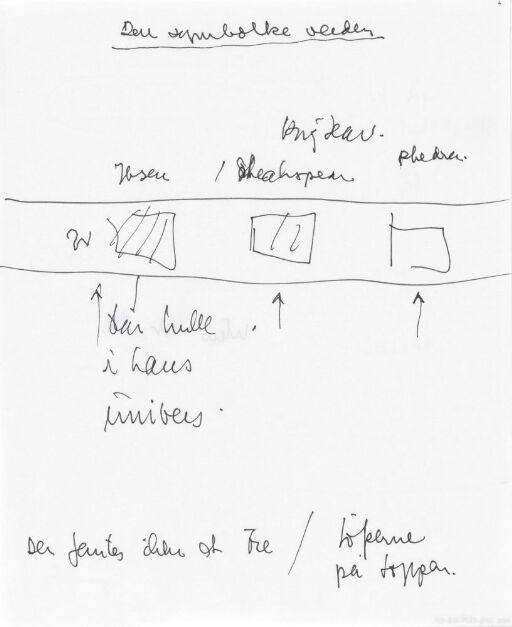 Den symbolske verden
Ibsen / Sheakspear
phedra.
i hans
univers.
Der fantes ikke et Tre / Løperne
på toppen.